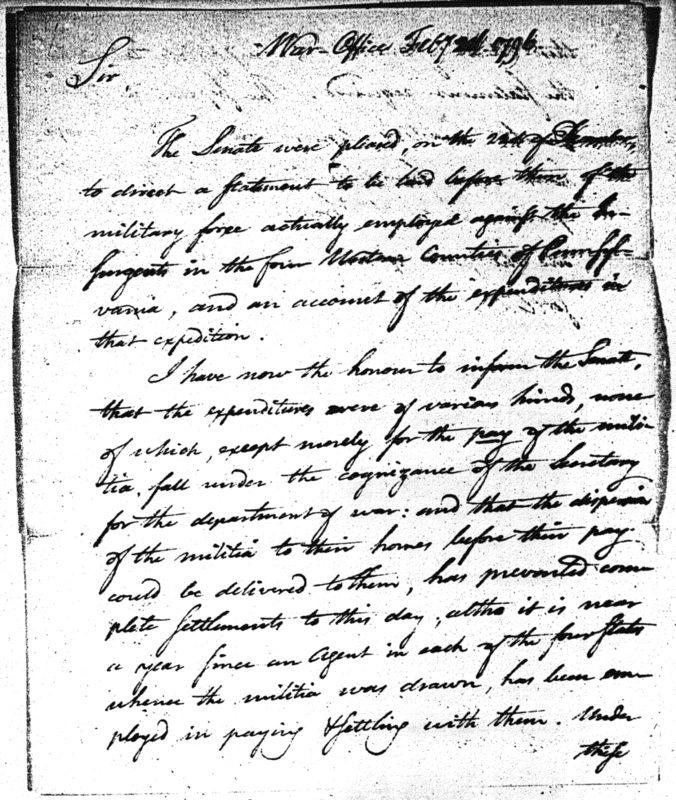 War-Office Feby 2d. 1796
Sir,
The Senate were pleased, on the of December,
to direct a statement to be laid before them of the
military force actually employed against the In-
surgents in the four Western Counties of Pennsyl-
vania, and an account of the expenditures in
that expedition.
I have now the honour to inform the Senate,
that the expenditures were of various kinds, none
of which, except merely for the pay of the mili-
tia, fall under the cognizance of the Secretary
for the department of war: and that the dispersion
of the militia to their homes before their pay
could be delivered to them, has prevented com-
plete settlements to this day, altho it is near
a year since an Agent in each of the four States
whence the militia was drawn, has been em-
ployed in paying & settling with them. Under
these